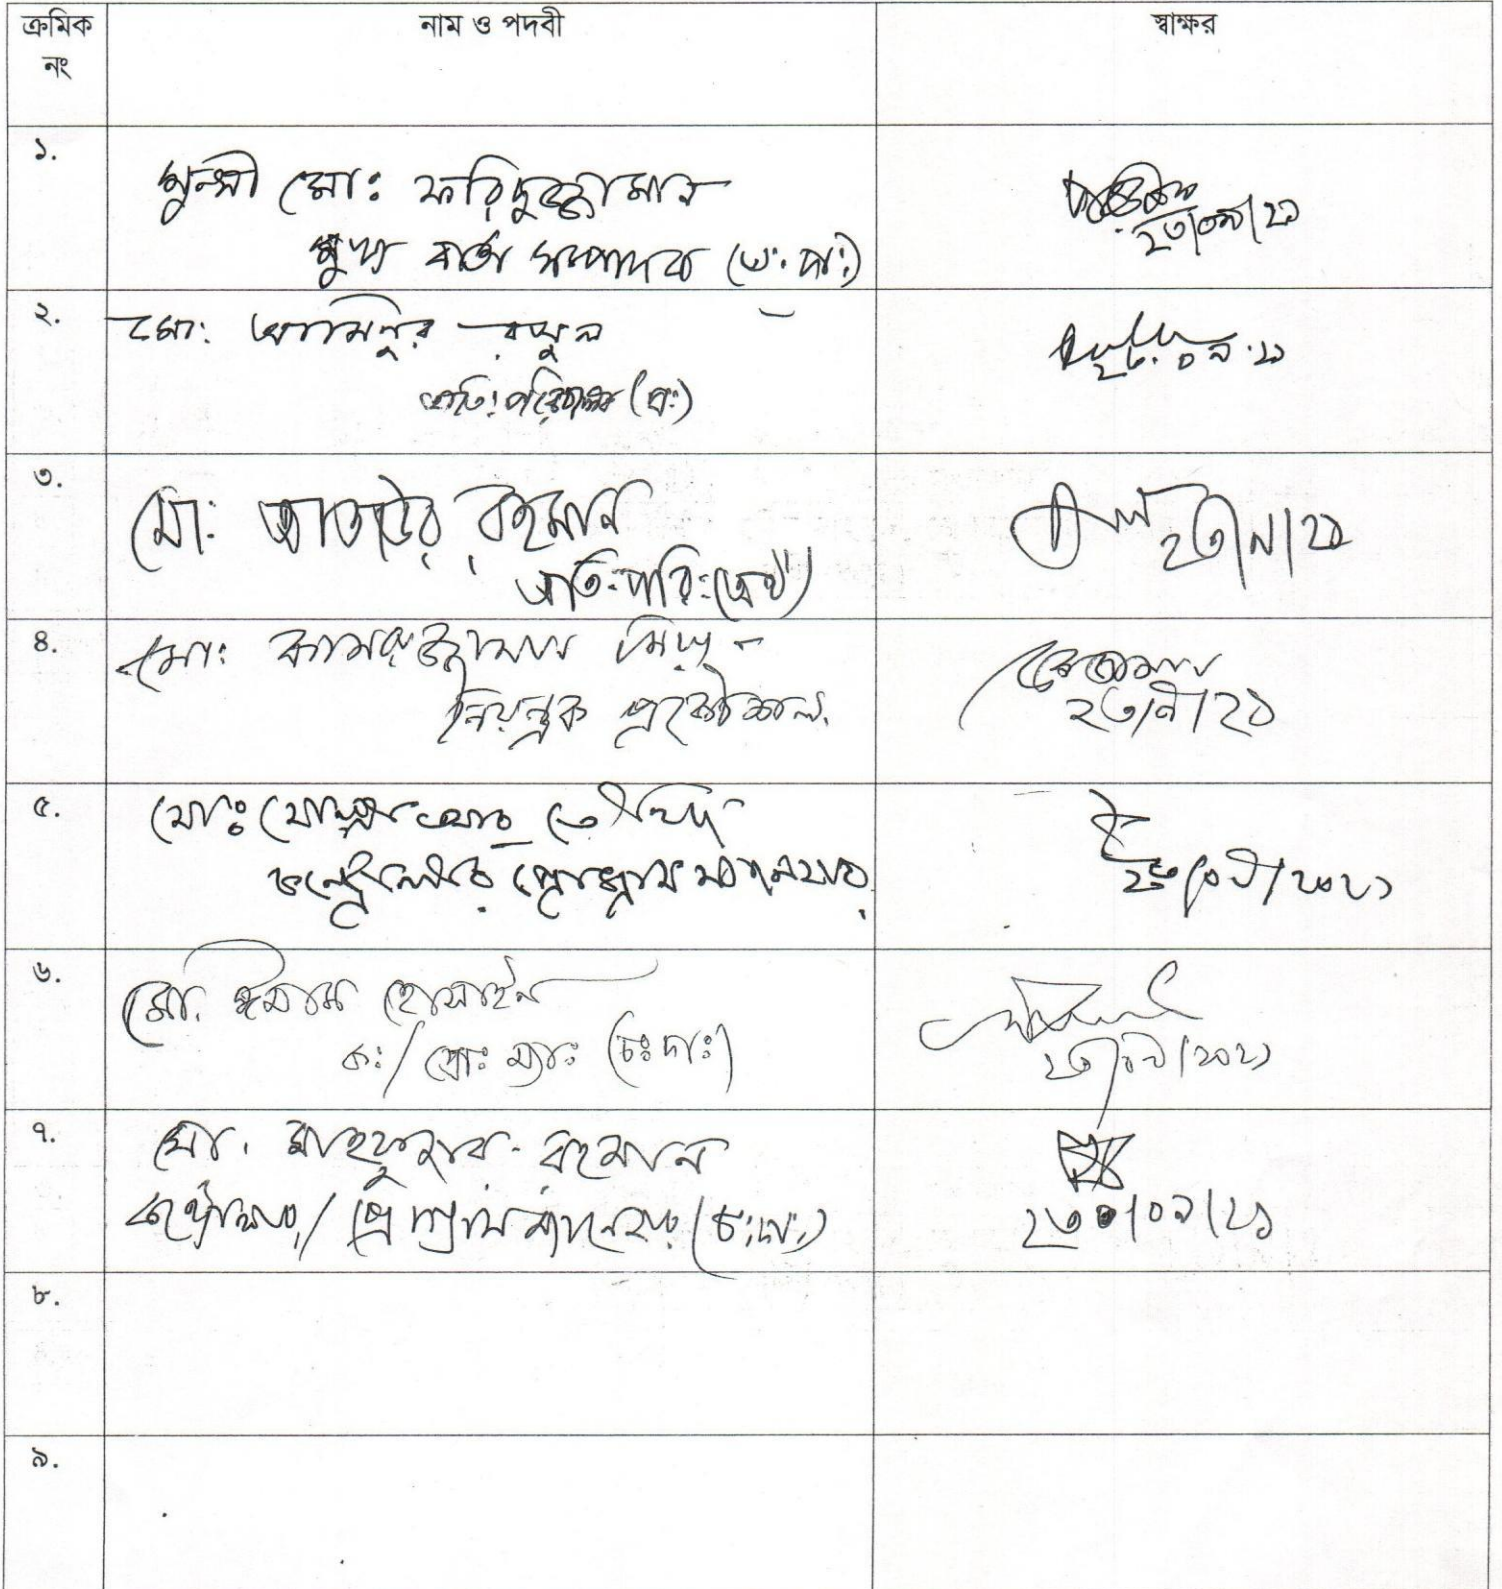 ক্রমিক নং
নাম ও পদবী
স্বাক্ষর
১.
মুন্সী মোঃ ফরিদুজ্জামান
মুখ্য বার্তা সম্পাদক (চঃ দাঃ)
২৩/০৯/২১
২.
মো: আমিনুর রসুল
অতি: পরিচালক (প্র:)
২৩.০৯.২১
৩.
মো: আতাউর রহমান
অতি:পরি:(অর্থ)
২৩/৯/২১
৪.
মো: কামরুজ্জামান মিয়া
নিয়ন্ত্রক প্রকৌশল.
২৩/৯/২১
৫.
মোঃ
কন্ট্রোলার প্রোগ্রাম ম্যানেজার
২৩/০৯/২০২১
৬.
মো. ঈমাম হোসাইন
ক:/ প্রোঃ ম্যাঃ (চঃ দাঃ)
২৩/০৯/২০২১
৭.
মো. মাহফুজার রহমান
কন্ট্রোলার/ প্রোগ্রাম ম্যানেজার (চ:দা:)
২৩/০৯/২১
৮.
৯.